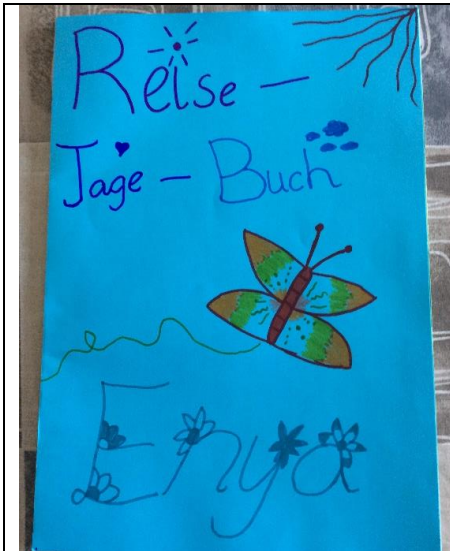 Reise -
Tage - Buch
Enya